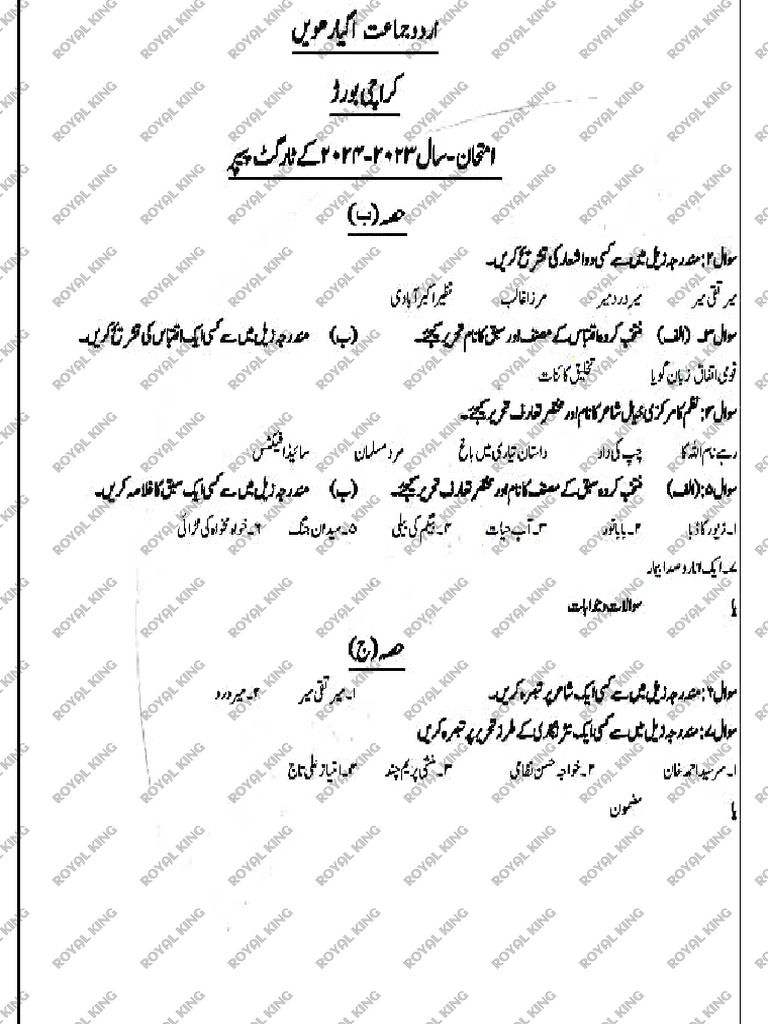 اردو جماعت اگیارھویں
کراچی بورڈ
امتحان - سال ۲۰۲۳-۲۰۲۴ کے ٹارگٹ پیپر
حصہ (ب)
سوال ۲: مندرجہ ذیل میں سے کسی دو اشعار کی تشریح کریں۔
میر تقی میر میر درد میر مرزا غالب نظیر اکبر آبادی
سوال ۳۔ (الف) منتخب کردہ اقتباس کے مصنف اور سبق کا نام تحریر کیجئے۔ (ب) مندرجہ ذیل میں سے کسی ایک اقتباس کی تشریح کریں۔
قومی اتفاق زبان گویا تخلیق کائنات
سوال ۴: نظم کا مرکزی خیال شاعر کا نام اور مختصر تعارف تحریر کیجئے۔
رہے نام اللہ کا چپ کی داد داستان تیاری میں باغ مرد مسلمان سائیڈ افیکٹس
سوال ۵: (الف) منتخب کردہ سبق کے مصنف کا نام اور مختصر تعارف تحریر کیجئے۔ (ب) مندرجہ ذیل میں سے کسی ایک سبق کا خلاصہ کریں۔
۱۔ زیور کا ڈبا ۲۔ بابا نور ۳۔ آب حیات ۴۔ بیگم کی بیلی ۵۔ میدان جنگ ۶۔ خواہ مخواہ کی لڑائی
۷۔ ایک انار و صد ابیمار
یا سوالات و جوابات
حصہ (ج)
سوال ۶: مندرجہ ذیل میں سے کسی ایک شاعر پر تبصرہ کریں۔ ۱۔ میر تقی میر ۲۔ میر درد
سوال ۷: مندرجہ ذیل میں سے کسی ایک نثر نگاری کے طرز تحریر پر تبصرہ کریں
۱۔ سر سید احمد خان ۲۔ خواجہ حسن نظامی ۳۔ منشی پریم چند ۴۔ امتیاز علی تاج
یا مضمون
ROYAL KING